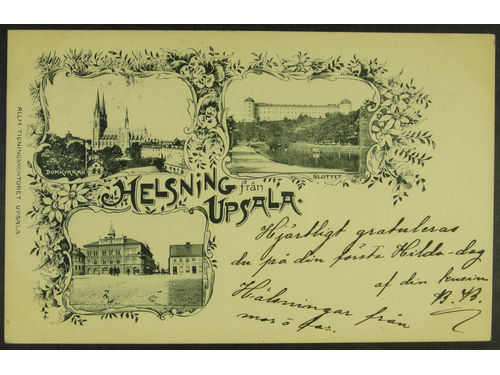 ALLM. TIDNINGSKONTORET. UPSALA
DOMKYRKAN
SLOTTET
HELSNING
från
UPSALA.
Hjärtligt gratuleras
du på din första Hilda-dag
af din kusin
B. B.
Hälsningar från
mor o far.